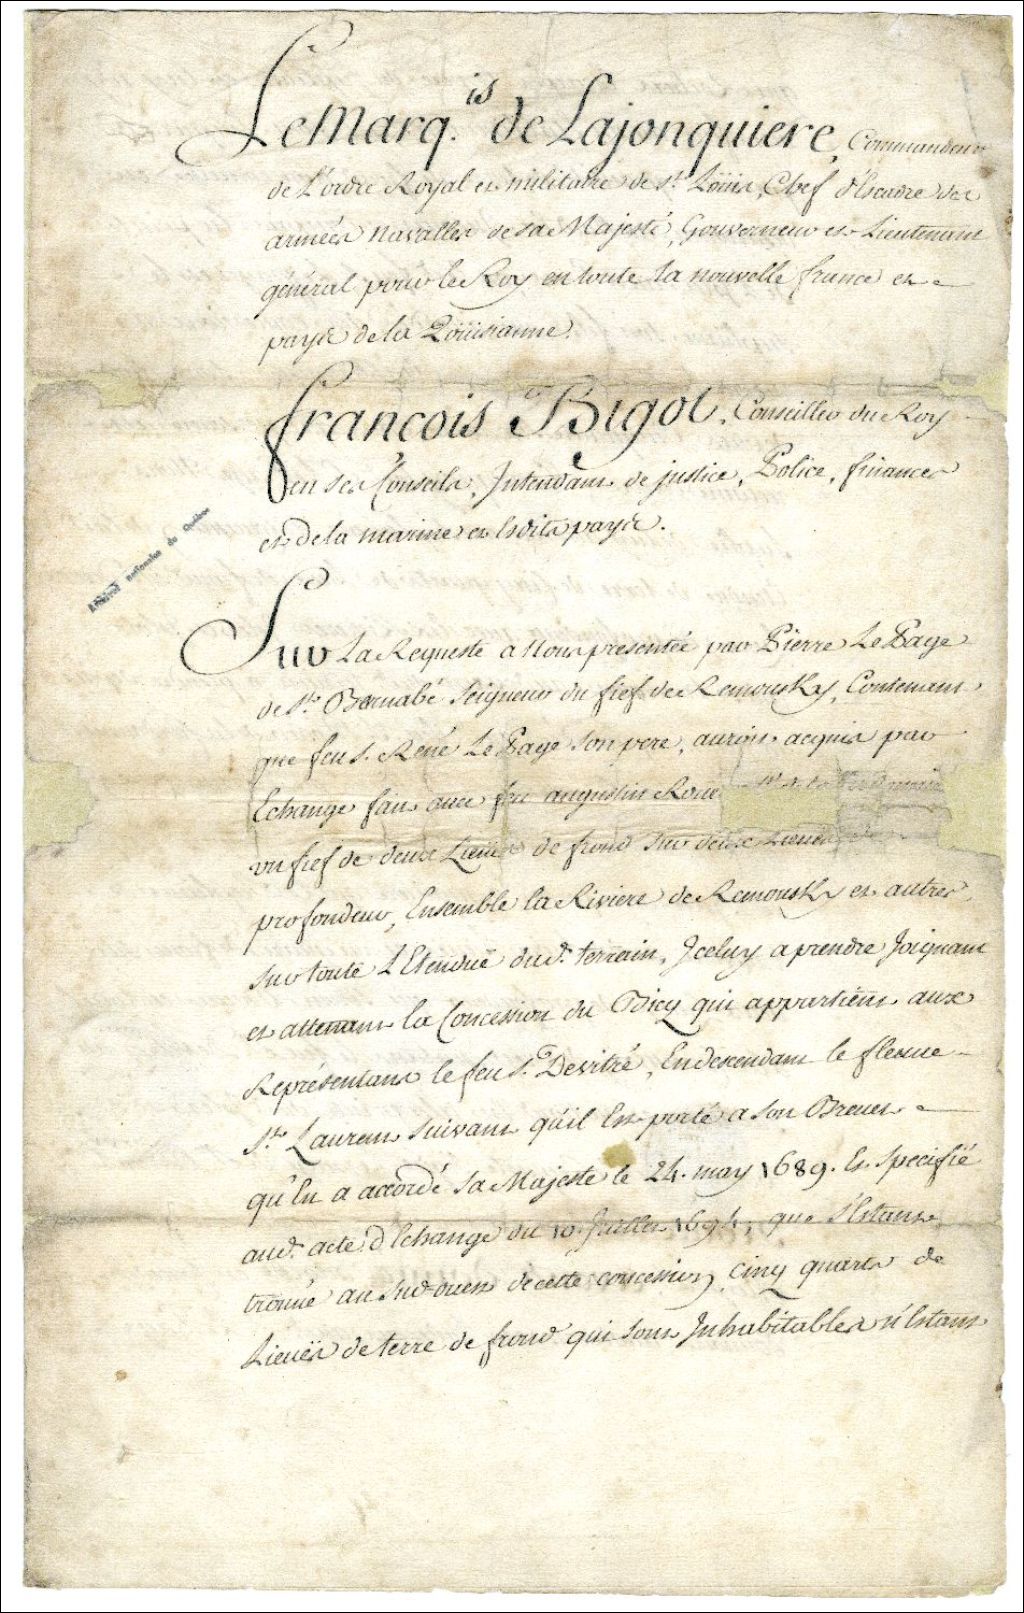 Le Marq.is de Lajonquiere, Commandeur
de L'ordre Royal et militaire de st. Loüis, Chef d'Escadre des
armées navalles de sa Majesté, Gouverneur et Lieutenant
général pour le Roy en toute la nouvelle france et
pays de la Loüisianne.
françois Bigot, Conseiller du Roy
en ses Conseils, Intendant de justice, Police, finances
et de la marine es sdits pays.
Archives nationales du Québec
Sur La Requeste a Nous presentée par Pierre Le Page
de st. Barnabé Seigneur du fief de Remousky, Contenant
que feu s. René Le Page son pere, auroit acquis par
Echange fait avec feu augustin Roüe
un fief de deux Lieües de frond sur deux Lieües
profondeur, Ensemble la Riviere de Remousky et autres
sur toute L'Etenduë dud. terrain, Iceluy a prendre Joignant
et attenant la Concession du Bicq qui appartient aux
Représentans le feu s. Devitré, En descendant le fleuve
st. Laurent suivant qu'il Est porté a son Brevet
qu'En a accordé sa Majesté le 24. may 1689. Et Specifié
aud. acte d'Echange du 10. Juillet 1694, que s'Etant
trouvé au Sud-ouest de cette concession, cinq quarts de
Lieuës de terre de frond qui sont Inhabitables n'Etant